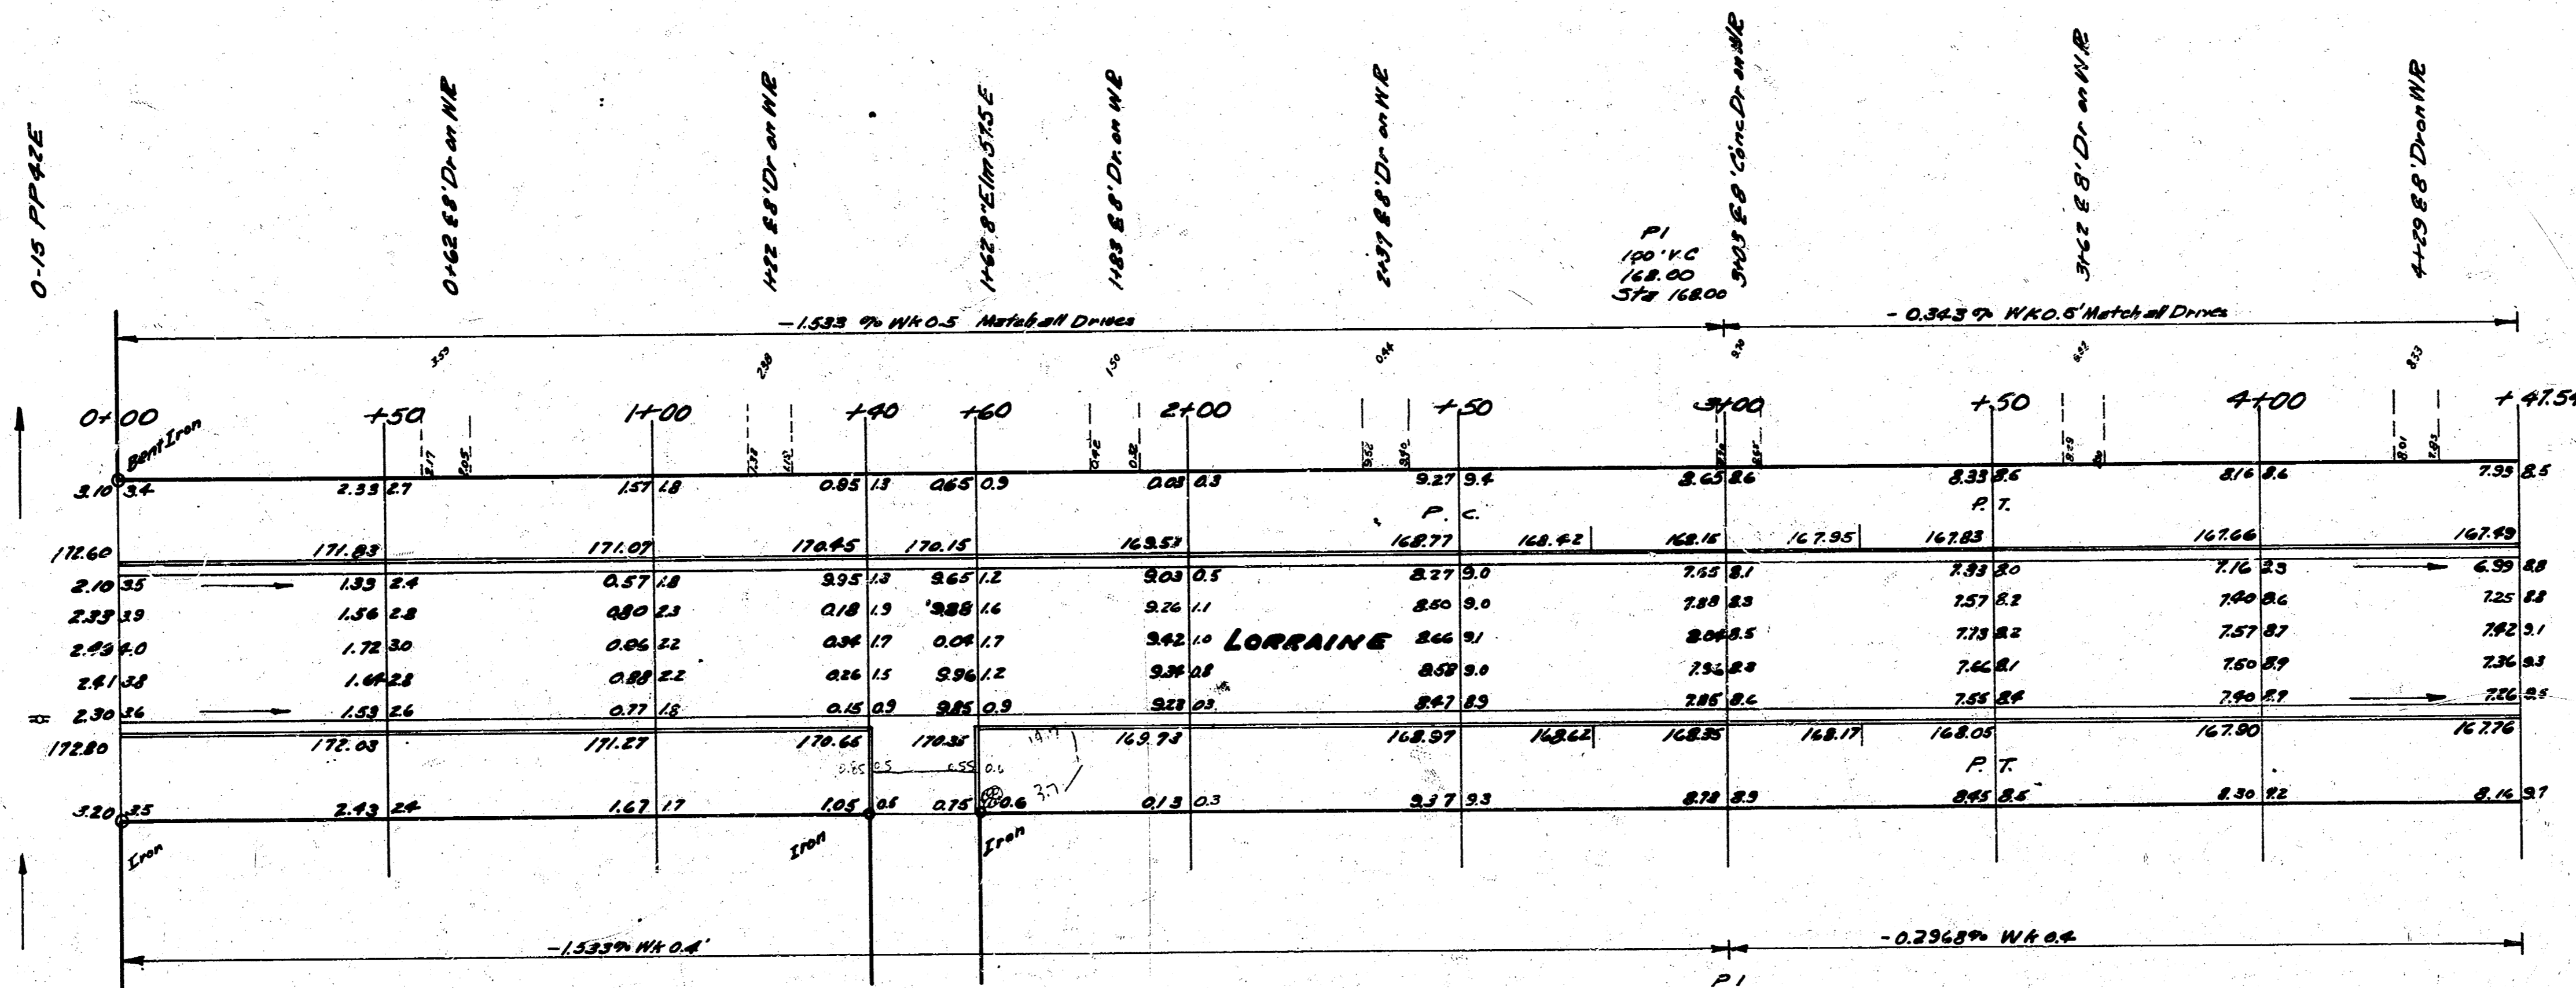 0-15 PP42E
0+62 ℄8'Dr on WR
1+22 ℄8'Dr on WR
1+62 8"Elm 57.5E
1+83 ℄8'Dr. on WR
2+39 ℄8'Dr on WR
3+03 ℄8' Conc Dr on WR
3+62 ℄8' Dr on WR
4+29 ℄8'Dr on WR
PI
100'V.C
168.00
Sta 168.00
-1.533 % Wk 0.5 Match all Drives
- 0.343 % WK 0.5' Match all Drives
3.59 2.98 1.50 0.44 8.33
0+00 +50 1+00 +40 +60 2+00 +50 3+00 +50 4+00 +47.54
Bent Iron
2.17 2.05 1.38 1.15 0.42 0.32 9.52 9.40 8.01 7.93
3.10 3.4 2.33 2.7 1.57 1.8 0.95 1.3 0.65 0.9 0.03 0.3 9.27 9.4 8.65 8.6 8.33 8.6 8.16 8.6 7.99 8.5
P. C. P. T.
172.60 171.83 171.07 170.45 170.15 169.53 168.77 168.42 168.15 167.95 167.83 167.66 167.49
2.10 3.5 1.33 2.4 0.57 1.8 9.95 1.3 9.65 1.2 9.03 0.5 8.27 9.0 7.65 8.1 7.33 8.0 7.16 8.3 6.99 8.8
2.33 3.9 1.56 2.8 0.80 2.3 0.18 1.9 9.88 1.6 9.26 1.1 8.50 9.0 7.88 8.3 7.57 8.2 7.40 8.6 7.25 8.8
2.49 4.0 1.72 3.0 0.96 2.2 0.34 1.7 0.04 1.7 9.42 1.0 LORRAINE 8.66 9.1 8.04 8.5 7.73 8.2 7.57 8.7 7.42 9.1
2.41 3.8 1.64 2.8 0.88 2.2 0.26 1.5 9.96 1.2 9.34 0.8 8.58 9.0 7.96 8.8 7.66 8.1 7.50 8.9 7.36 9.3
2.30 3.6 1.53 2.6 0.77 1.8 0.15 0.9 9.85 0.9 9.23 0.3 8.47 8.9 7.85 8.6 7.55 8.4 7.40 8.9 7.26 9.5
172.80 172.03 171.27 170.65 170.35 169.73 168.97 168.62 168.35 168.17 168.05 167.90 167.76
0.85 0.5 0.55 0.6
3.7
P. T.
3.20 3.5 2.43 2.4 1.67 1.7 1.05 0.6 0.75 0.6 0.13 0.3 9.37 9.3 8.78 8.9 8.45 8.5 8.30 9.2 8.16 9.7
Iron Iron Iron
-1.533% Wk 0.4'
-0.2968% Wk 0.4
PI